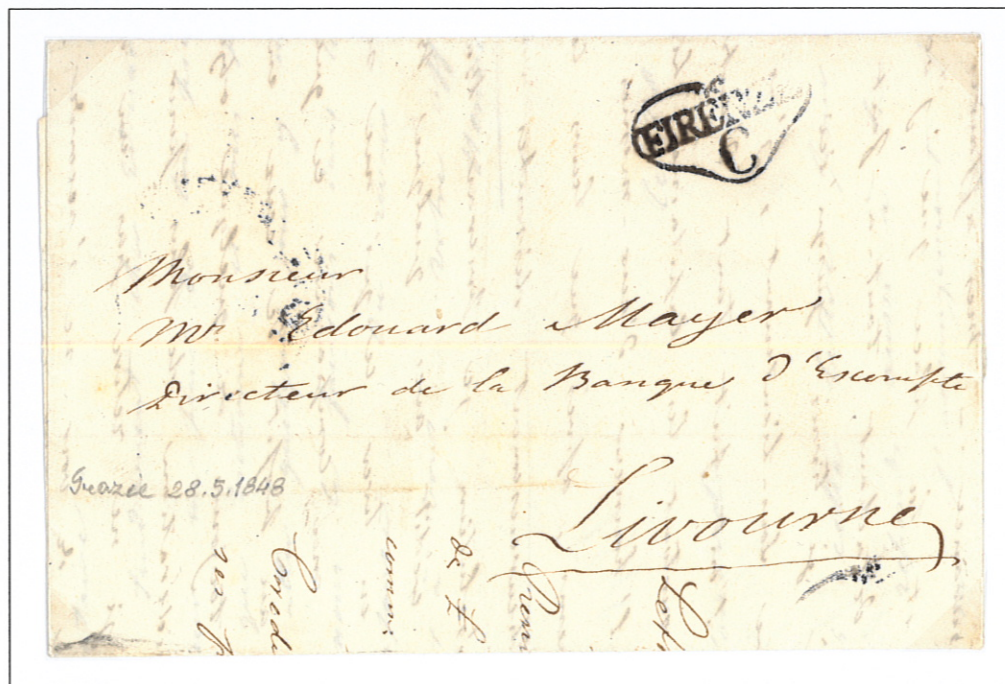 FIRENZE
C
Monsieur
Mr Edouard Mayer
Directeur de la Banque D'Escompte
Grazie 28.5.1848
Livourne
de
comm